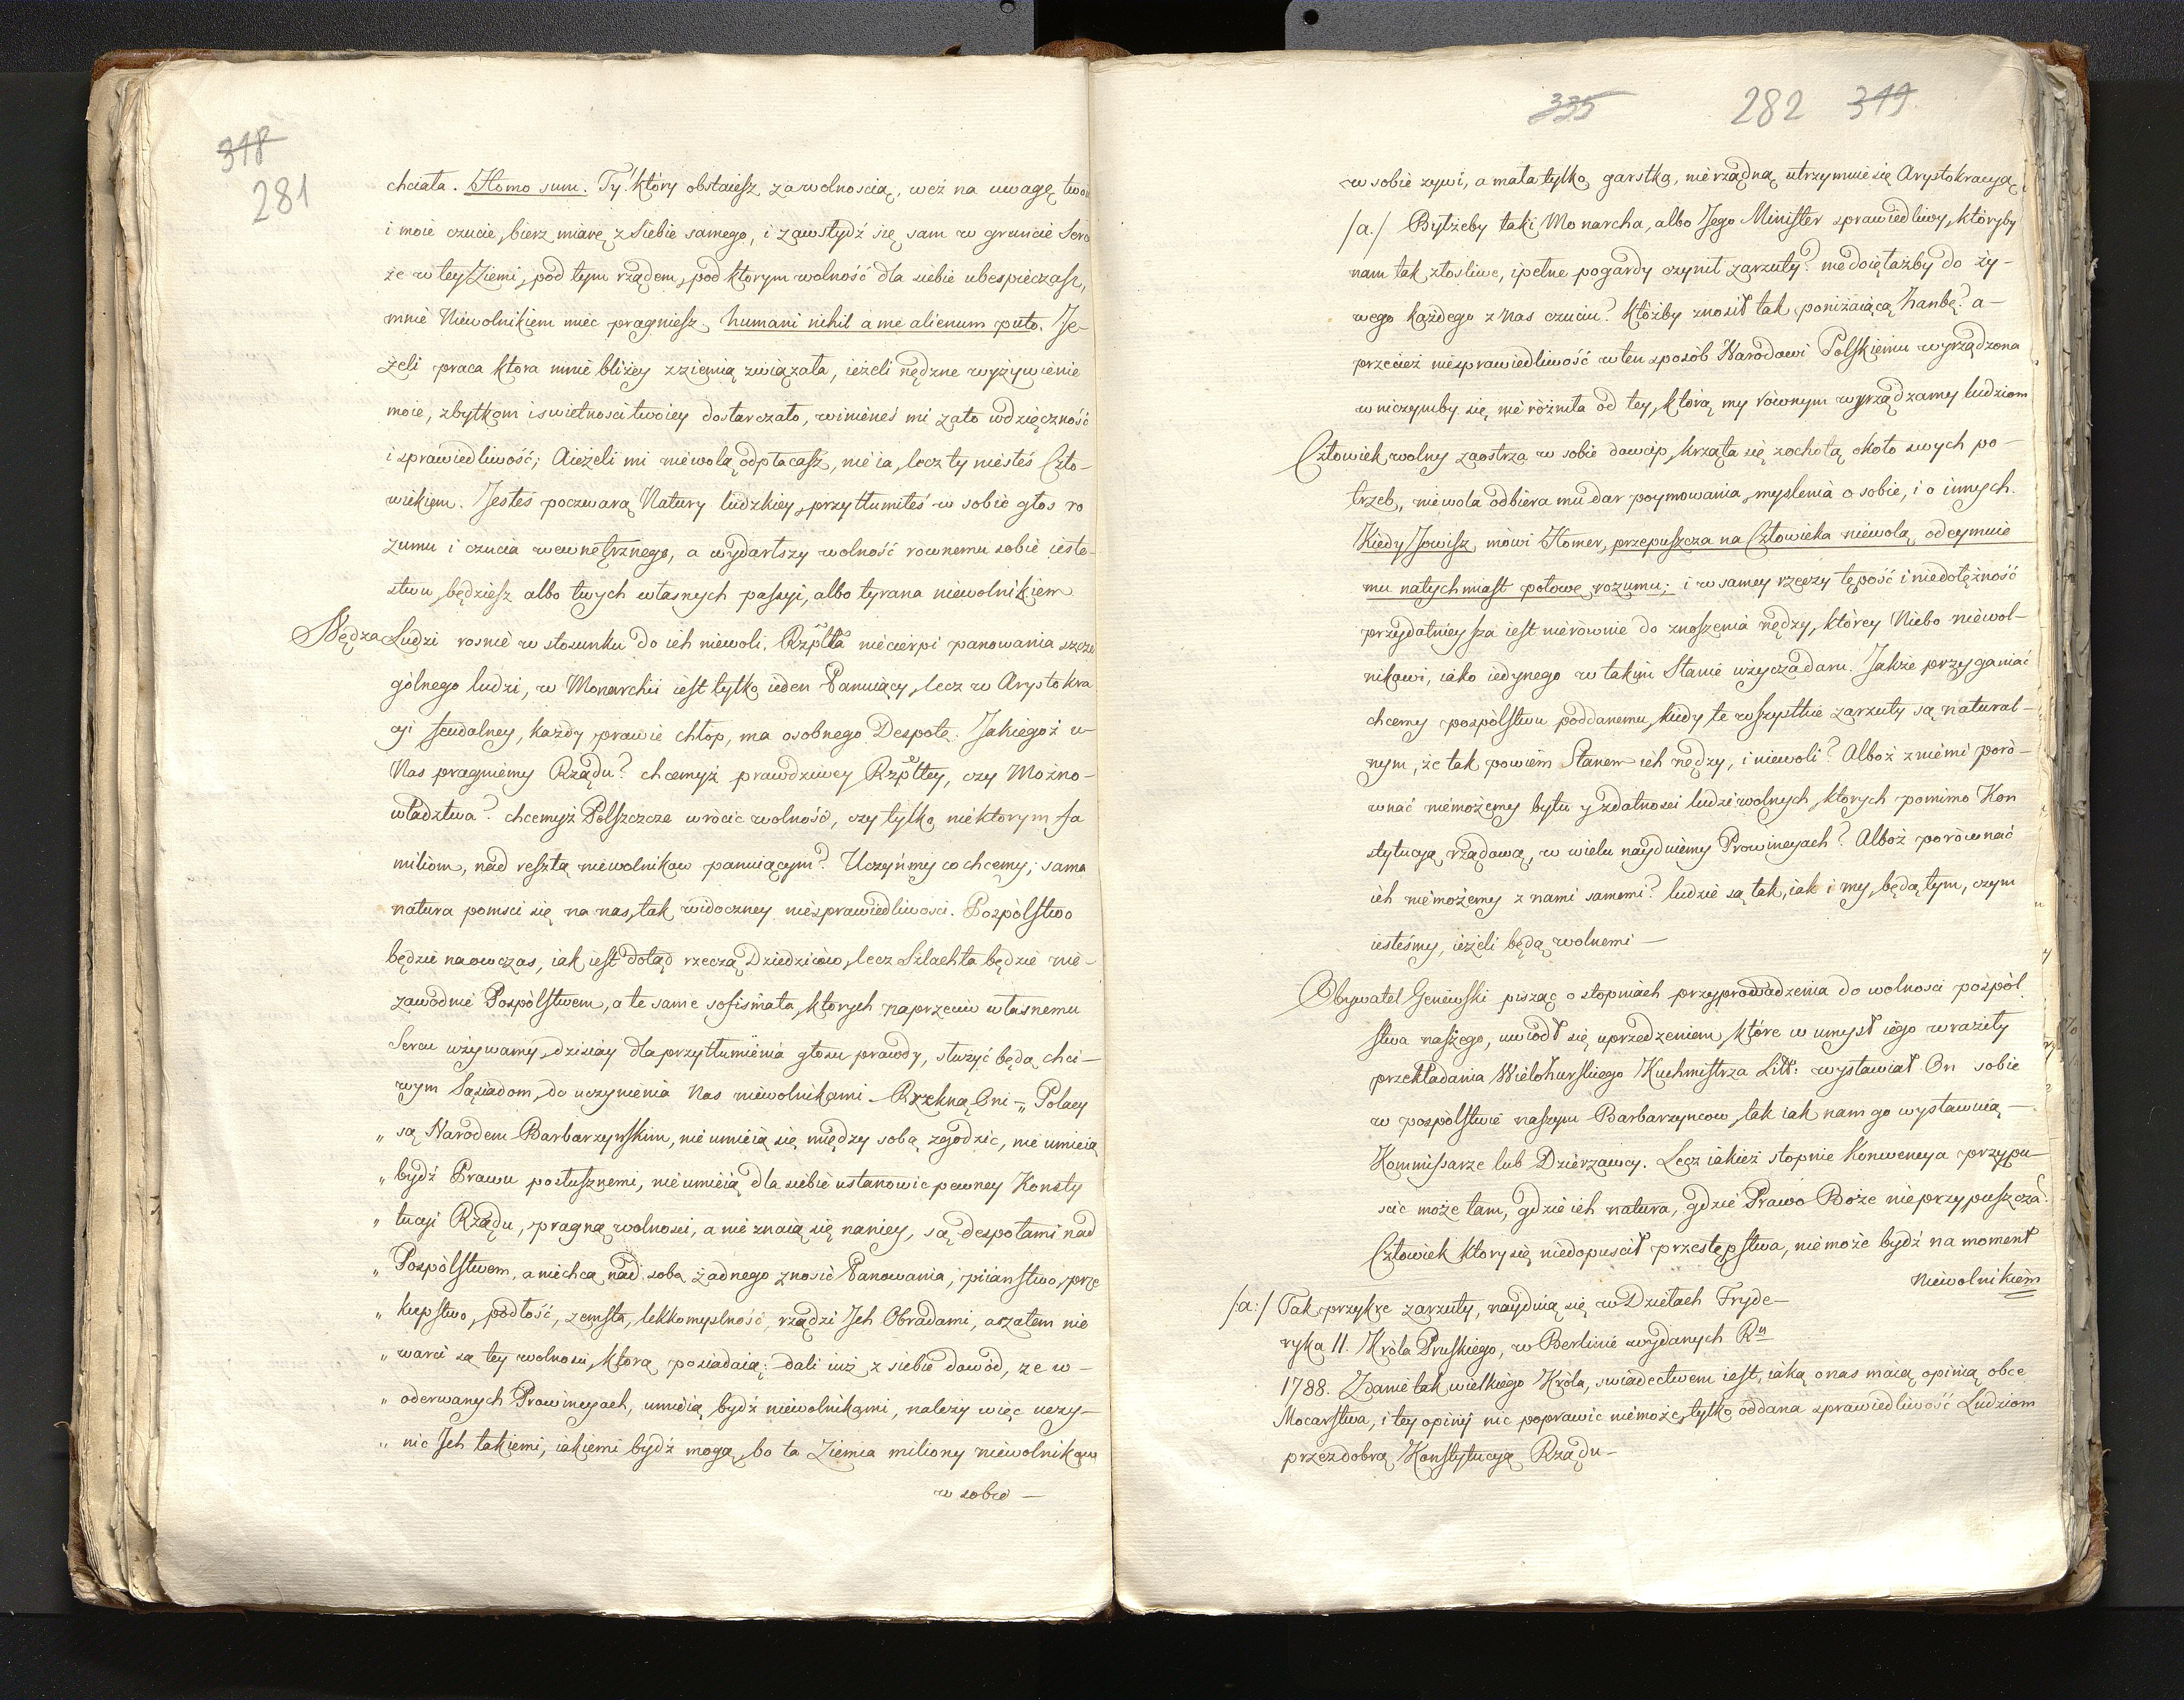 348
281
chciała. Homo sum. Ty! który obstaiesz za wolnością, weź na uwagę twoie
i moie czucie, bierz miarę z siebie samego, i zawstydź się sam w gruncie Serca
że w tey Ziemi, pod tym rządem, pod ktorym wolność dla siebie ubespieczasz,
mnie Niewolnikiem mieć pragniesz, humani nihil a me alienum puto. Je-
żeli praca ktora mnie bliżey z ziemią związała, ieżeli nędzne wyżywienie
moie, zbytkom i swietności twoiey dostarczało, winieneś mi zato wdzięczność
i sprawiedliwość; A ieżeli mi niewolą odpłacasz, nie ia, lecz ty niesteś Czło-
wiekiem. Jesteś poczwarą Natury ludzkiey, przytłumiłeś w sobie głos ro
zumu i czucia wewnętrznego, a wydartszy wolność rownemu sobie ieste-
stwu, będziesz albo twych własnych passyi, albo tyrana niewolnikiem
Nędza Ludzi rosnie w stosunku do ich niewoli. Rzpltta niecierpi panowania szcze
gólnego ludzi, w Monarchii iest tylko ieden Panuiący, lecz w Arystokra
cyi feudalney, każdy prawie chłop, ma osobnego Despotę. Jakiegoż u-
Nas pragniemy Rządu? chcemyż prawdziwey Rzpltey, czy Możno-
władztwa? chcemyż Polszcze wrócic wolność, czy tylko niektorym Fa
miliom, nad resztą niewolnikow panuiącym? Uczyńmy co chcemy; sama
natura pomsci się na nas, tak widoczney niesprawiedliwosci. Pospólstwo
będzie naowczas, iak iest dotąd rzeczą Dziedziców, lecz Szlachta będzie nie-
zawodnie Pospólstwem, a te same sofismata, ktorych naprzeciw własnemu
Sercu używamy, dzisiay dla przytłumienia głosu prawdy, służyć będą chci-
wym Sąsiadom, do uczynienia Nas niewolnikami. Rzekną Oni - „ Polacy
„ są Narodem Barbarzynskim, nie umieią się między sobą zgodzic, nie umieią
„ bydź Prawu posłusznemi, nie umieią dla siebie ustanowic pewney Konsty
„ tucyi Rządu, pragną wolnosci, a nie znaią się na niey, są despotami nad
„ Pospólstwem, a niechcą nad sobą żadnego znosić Panowania; piianstwo, prze
„ kupstwo, podłość, zemsta, lekkomyslność, rządzi Jch Obradami, a zatem nie
„ warci są tey wolnosci, ktorą posiadaią; dali iuż z siebie dowód, że w-
„ oderwanych Prowincyach, umieią bydź niewolnikami, należy więc uczy-
„ nic Jch takiemi, iakiemi bydź mogą, bo ta Ziemia miliony niewolnikow
w sobie -
335 282 349
w sobie żywi, a mała tylko garstka, nierządną utrzymuie się Arystokracyą,
/a/ Byłżeby taki Monarcha, albo Jego Minister sprawiedliwy, któryby
nam tak złosliwe, i pełne pogardy czynił zarzuty? niedoiętażby do ży-
wego każdego z Nas czuciu? Któżby znosił tak poniżaiącą hanbę? a-
przecież niesprawiedliwość w ten sposób Narodowi Polskiemu wyrządzona
w niczymby się nie różniła od tey, którą my równym wyrządzamy ludziom
Człowiek wolny zaostrza w sobie dowcip, krząta się z ochotą około swych po-
trzeb, niewola odbiera mu dar poymowania, myslenia o sobie, i o innych.
Kiedy Jowisz, mowi Homer, przepuszcza na Człowieka niewolą, odeymuie
mu natychmiast połowę rozumu; i w samey rzeczy tępość i niedołężność
przydatnieysza iest nierównie do znoszenia nędzy, którey Niebo niewol-
nikowi, iako iedynego w takim Stanie użycza daru. Jakże przyganiać
chcemy pospólstwu poddanemu, kiedy te wszystkie zarzuty są natural-
nym, że tak powiem Stanem ich nędzy, i niewoli? Alboż z niemi poró-
wnać niemożemy bytu y zdatnosci ludzi wolnych, ktorych pomimo Kon
stytucyą rządową, w wielu nayduiemy Prowincyach? Alboż porównać
ich niemożemy z nami samemi? ludzie są tak, iak i my, będą tym, czym
iesteśmy, ieżeli będą wolnemi -
Obywatel Geniewski pisząc o stopniach przyprowadzenia do wolnosci pospól
stwa naszego, uwiodł się uprzedzeniem, które w umysł iego wraziły
przekładania Wielohurskiego Kuchmistrza Litt: wystawiał On sobie
w pospólstwie naszym Barbarzyncow, tak iak nam go wystawuią -
Kommissarze lub Dzierzawcy. Lecz iakież stopnie Konwencya przypu-
scic może tam, gdzie ich natura, gdzie Prawo Boże nieprzypuszcza?
Człowiek ktory się niedopuscił przestępstwa, niemoże bydź na moment
Niewolnikiem
/a:/ Tak przykre zarzuty, nayduią się w Dziełach Fryde-
ryka II. Króla Pruskiego, w Berlinie wydanych Ru
1788. Zdanie tak wielkiego Króla, swiadectwem iest, iaką o nas maią opinią obce
Mocarstwa, i tey opinij nic poprawic niemoże, tylko oddana sprawiedliwość Ludziom
przez dobrą Konstytucyą Rządu -